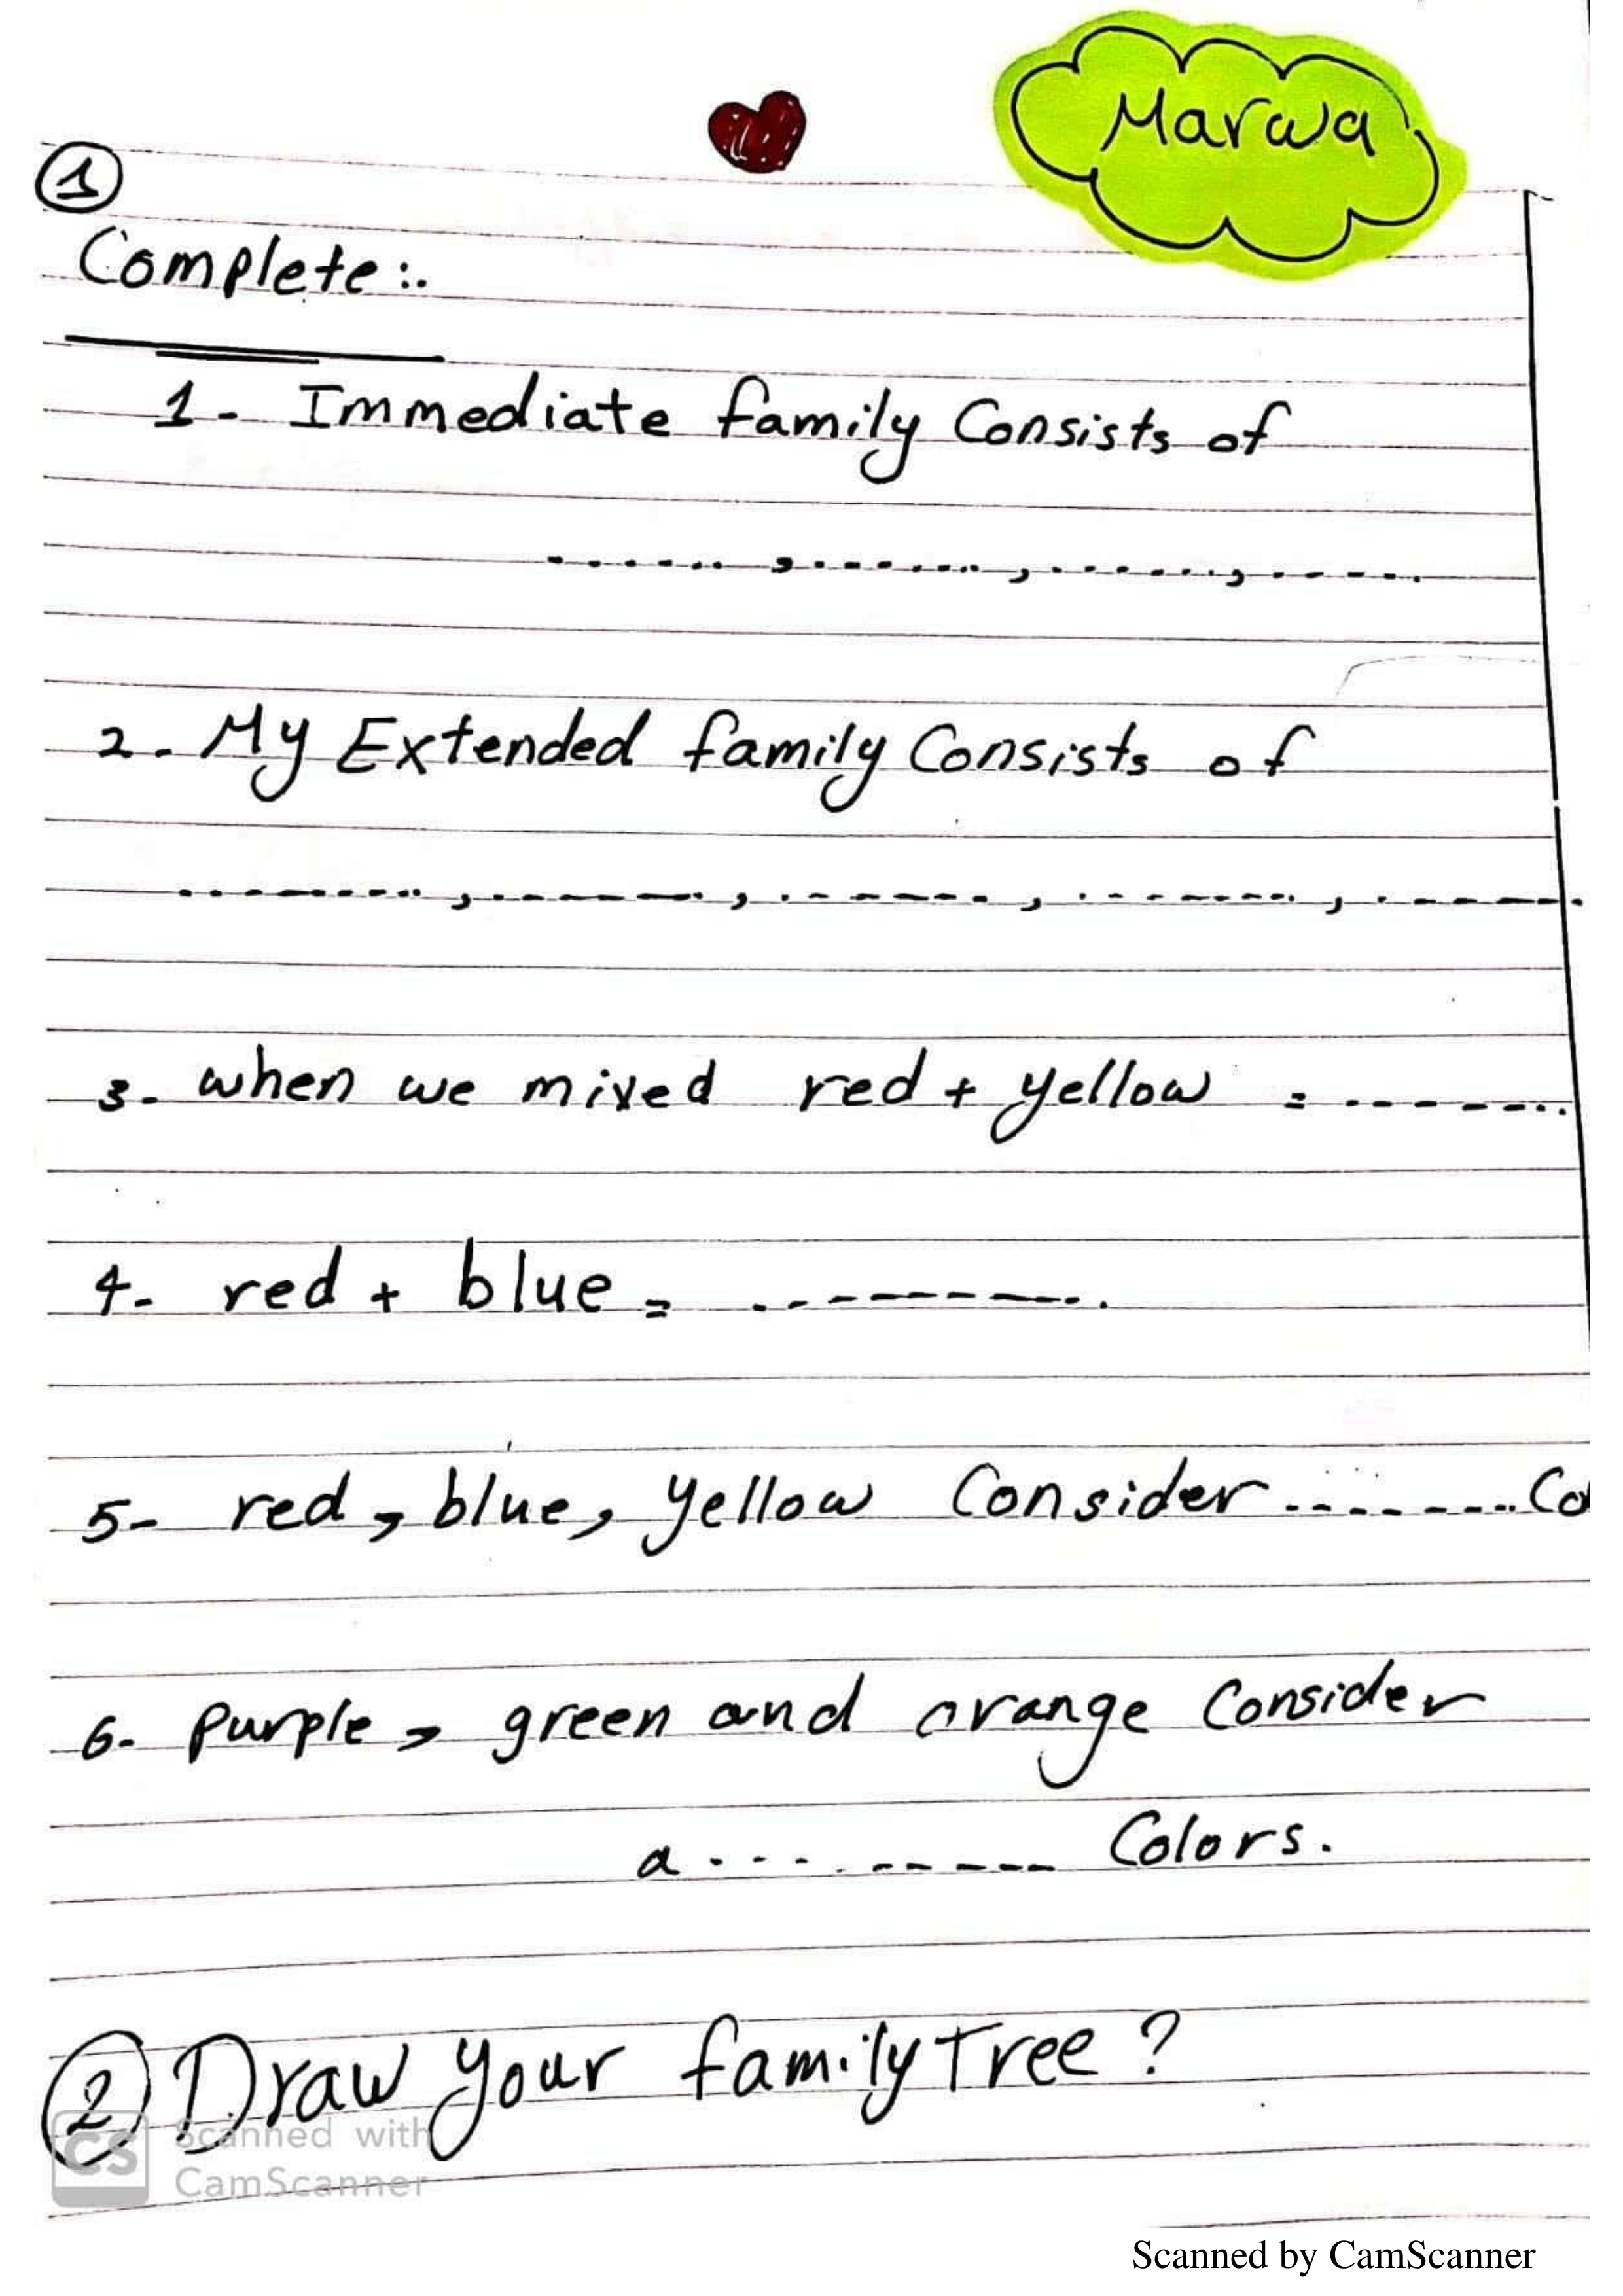 Marwa
1
Complete :.
1- Immediate family Consists of
........, ........, ........, ........
2- My Extended family Consists of
........, ........, ........, ........, ........
3- when we mixed red + yellow = ........
4- red + blue = ........
5- red, blue, yellow Consider ........ Co
6- purple, green and orange Consider
a ........ Colors.
2 Draw your family Tree ?
CS Scanned with
CamScanner
Scanned by CamScanner